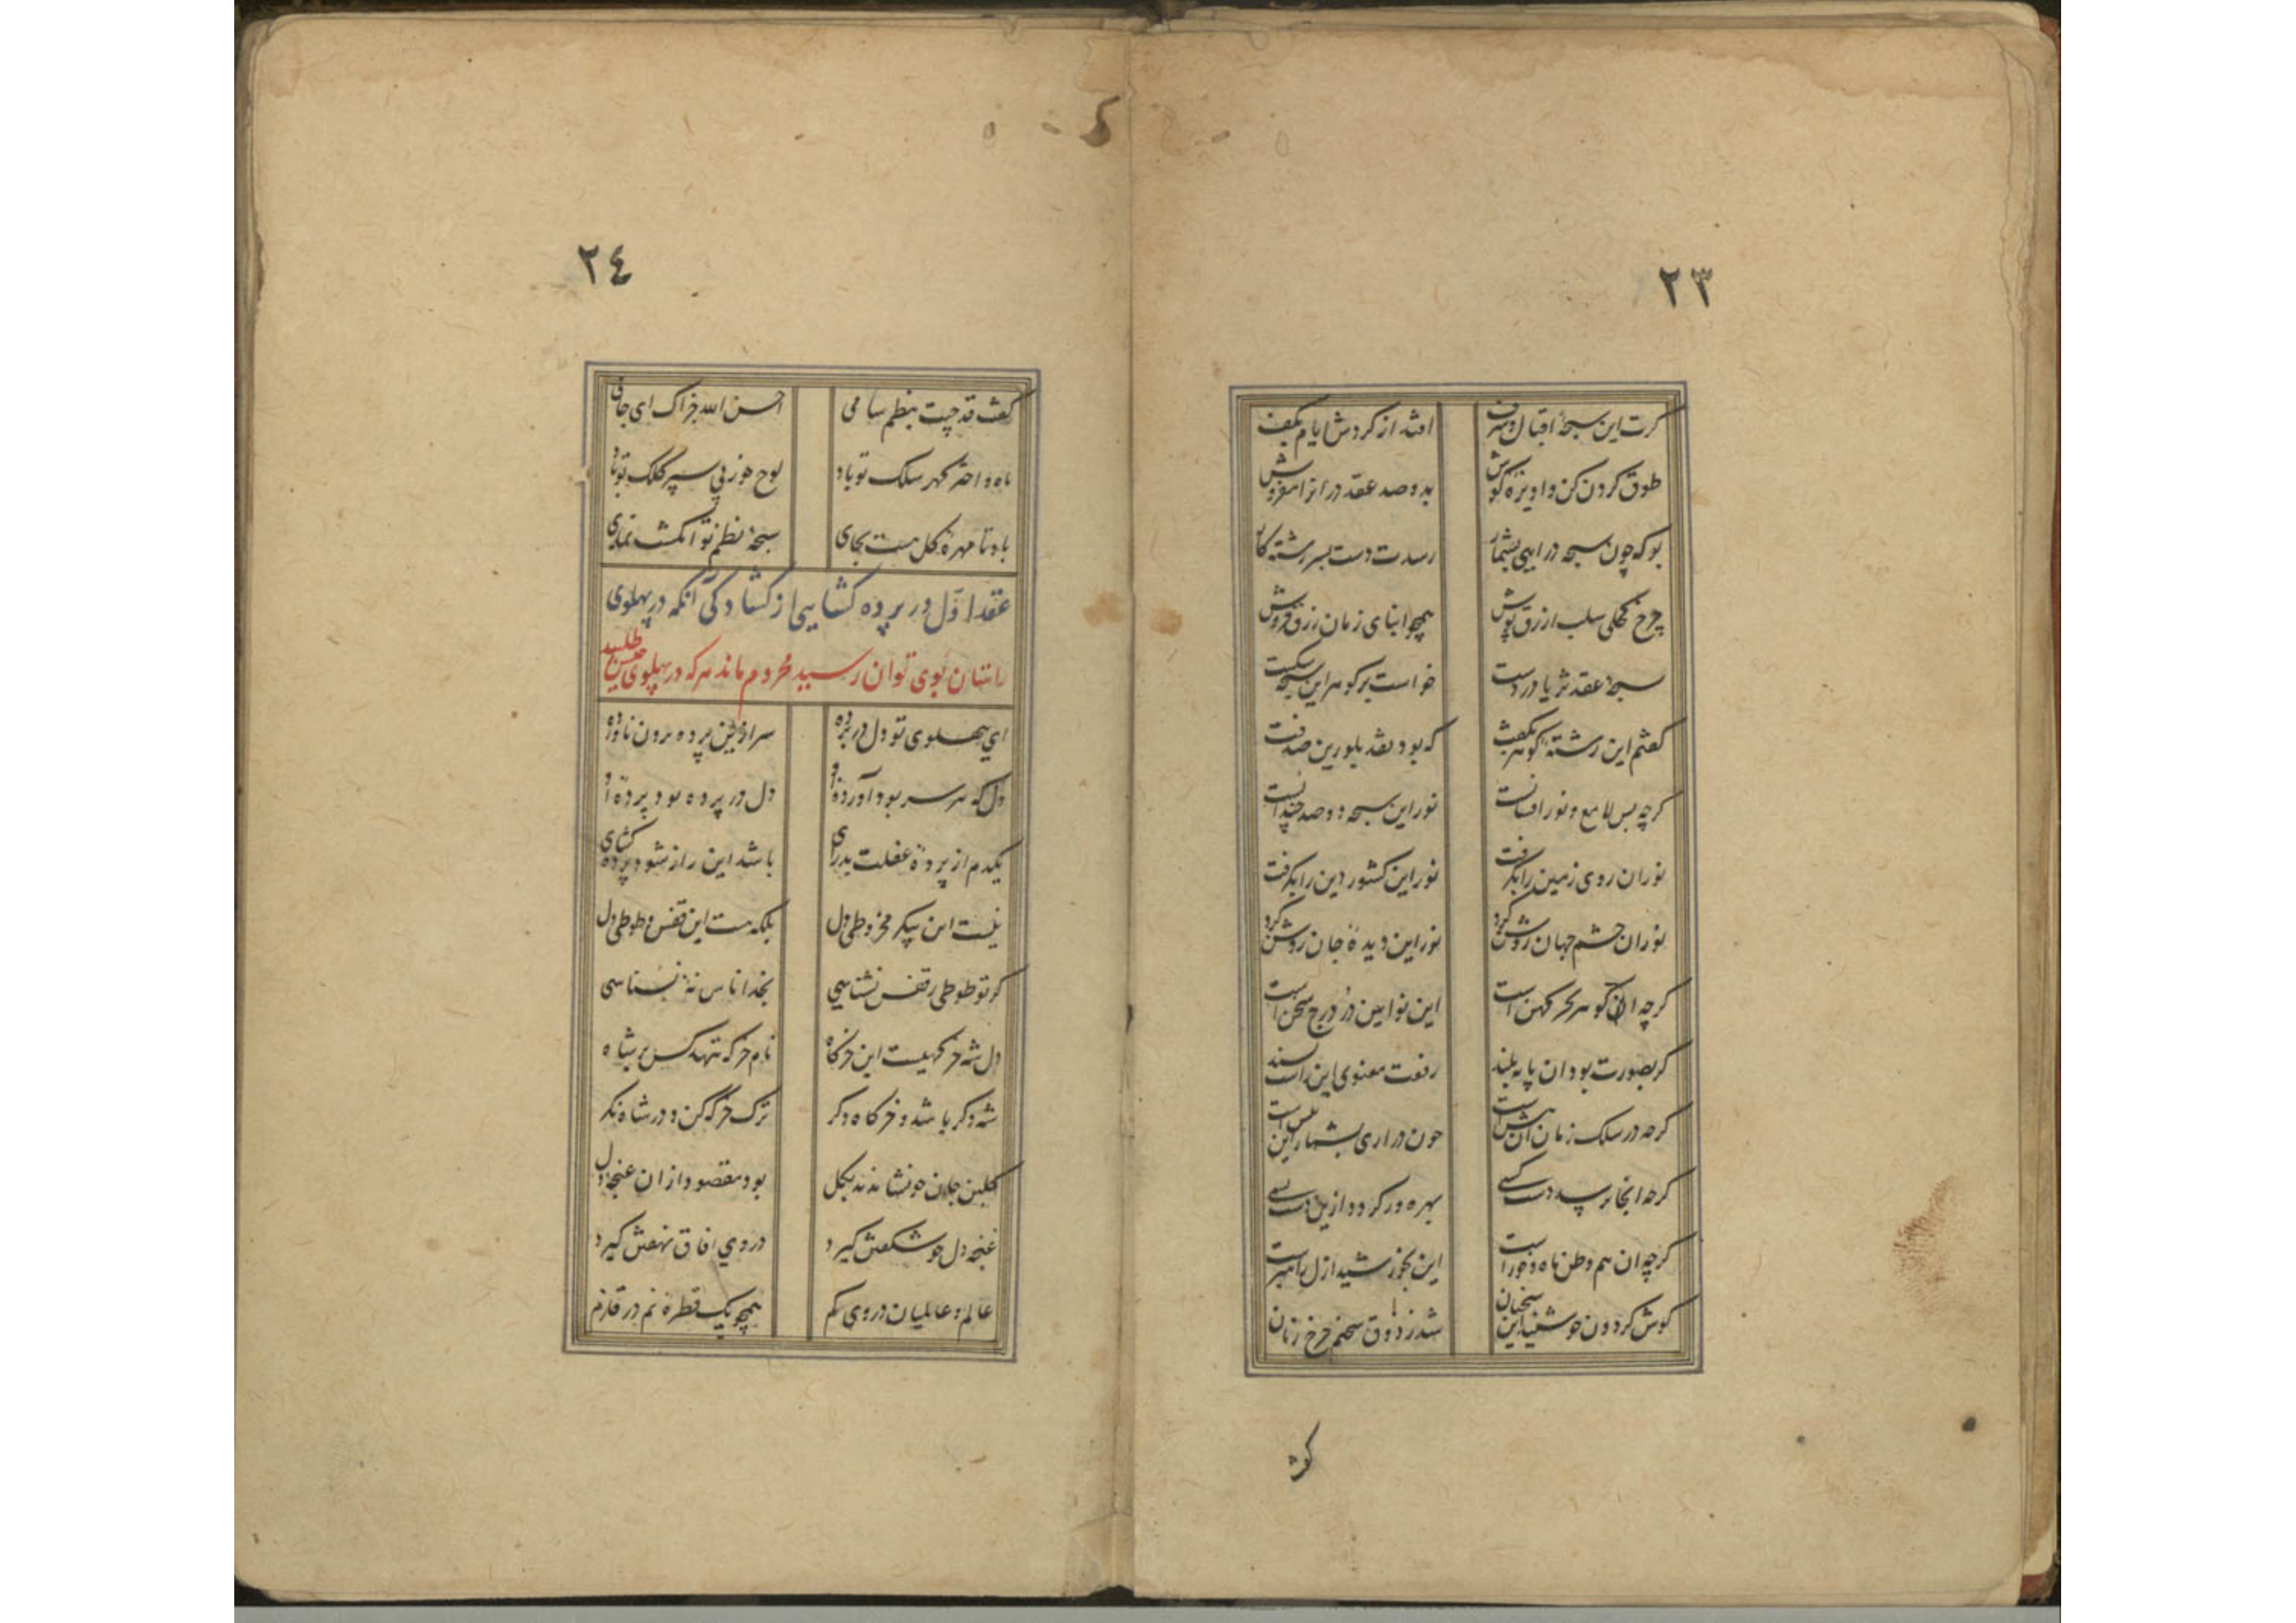 ٢٣
کرت این سبحهٔ اقبال و شرف افتد از کردش ایام بکف
طوق کردن کن و اویزهٔ کوش بدو صد عقد در انرا مفروش
بو که چون سبحه در ایی بشمار رسدت دست بسر رشتهٔ کار
چرخ کحلی سلب ازرق پوش همچو ابنای زمان زرق فروش
سبحهٔ عقد ثریا در دست خواست بر کوهر این سبحه شکست
کفتم این رشتهٔ کوهر بکفت که بود نقد بلورین صدفت
کرچه بس لامع و نور افشانست نور این سبحه دو صد چندانست
نور ان روی زمین را بکرفت نور این کشور دین را بکرفت
نور ان چشم جهان روشن کرد نور این دیدهٔ جان روشن کرد
کرچه ان کوهر بحر کهن است این نو ایین در درج سخن است
کر بصورت بود ان پایه بلند رفعت معنوی این راست پسند
کرچه در سلک زمان ان پیش است چون در اری بشمار این بیش است
کرچه انجا نرسد دست کسی بهره ور کردد ازین دست بسی
کرچه ان هم وطن ماه و خور است این بخورشید ازل راهبر است
کوش کردون چو شنید این سخنان شد ز ذوق سخنم چرخ زنان
کفت
٢٤
کفت قد چیت بنظم سامی احسن الله جزاک ای جامی
ماه و اختر کهر سلک تو باد لوح خور زیر سپر کلک تو باد
باد تا مهرهٔ کل هست بجای سبحهٔ نظم تو انکشت نمای
عقد اول در پرده کشایی از کشادکی آنکه در پهلوی
راستان بوی توان رسید محروم ماند هر که در پهلوی حسن طلبید
ای بپهلوی تو دل در پرده سر ازین پرده برون ناورده
دل که هر سر بود آوردهٔ او دل در پرده بود پردهٔ او
یکدم از پردهٔ غفلت بدر ای باشد این راز شود پرده کشای
نیست این پیکر مخروطی دل بلکه هست این قفس و طوطی دل
کر تو طوطی ز قفس نشناسی بخدا ناس نهٔ نسناسی
دل شه خرکهیست این خرکاه نام خرکه ننهد کس بر شاه
شه دکر باشد و خرکاه دکر ترک خرکه کن و در شاه نکر
کلبن جان چو نشاندند بکل بود مقصود ازان غنچهٔ دل
غنچهٔ دل چو شکفتن کیرد در وی افاق نهفتن کیرد
عالم و عالمیان در وی کم همچو یک قطرهٔ نم در قلزم